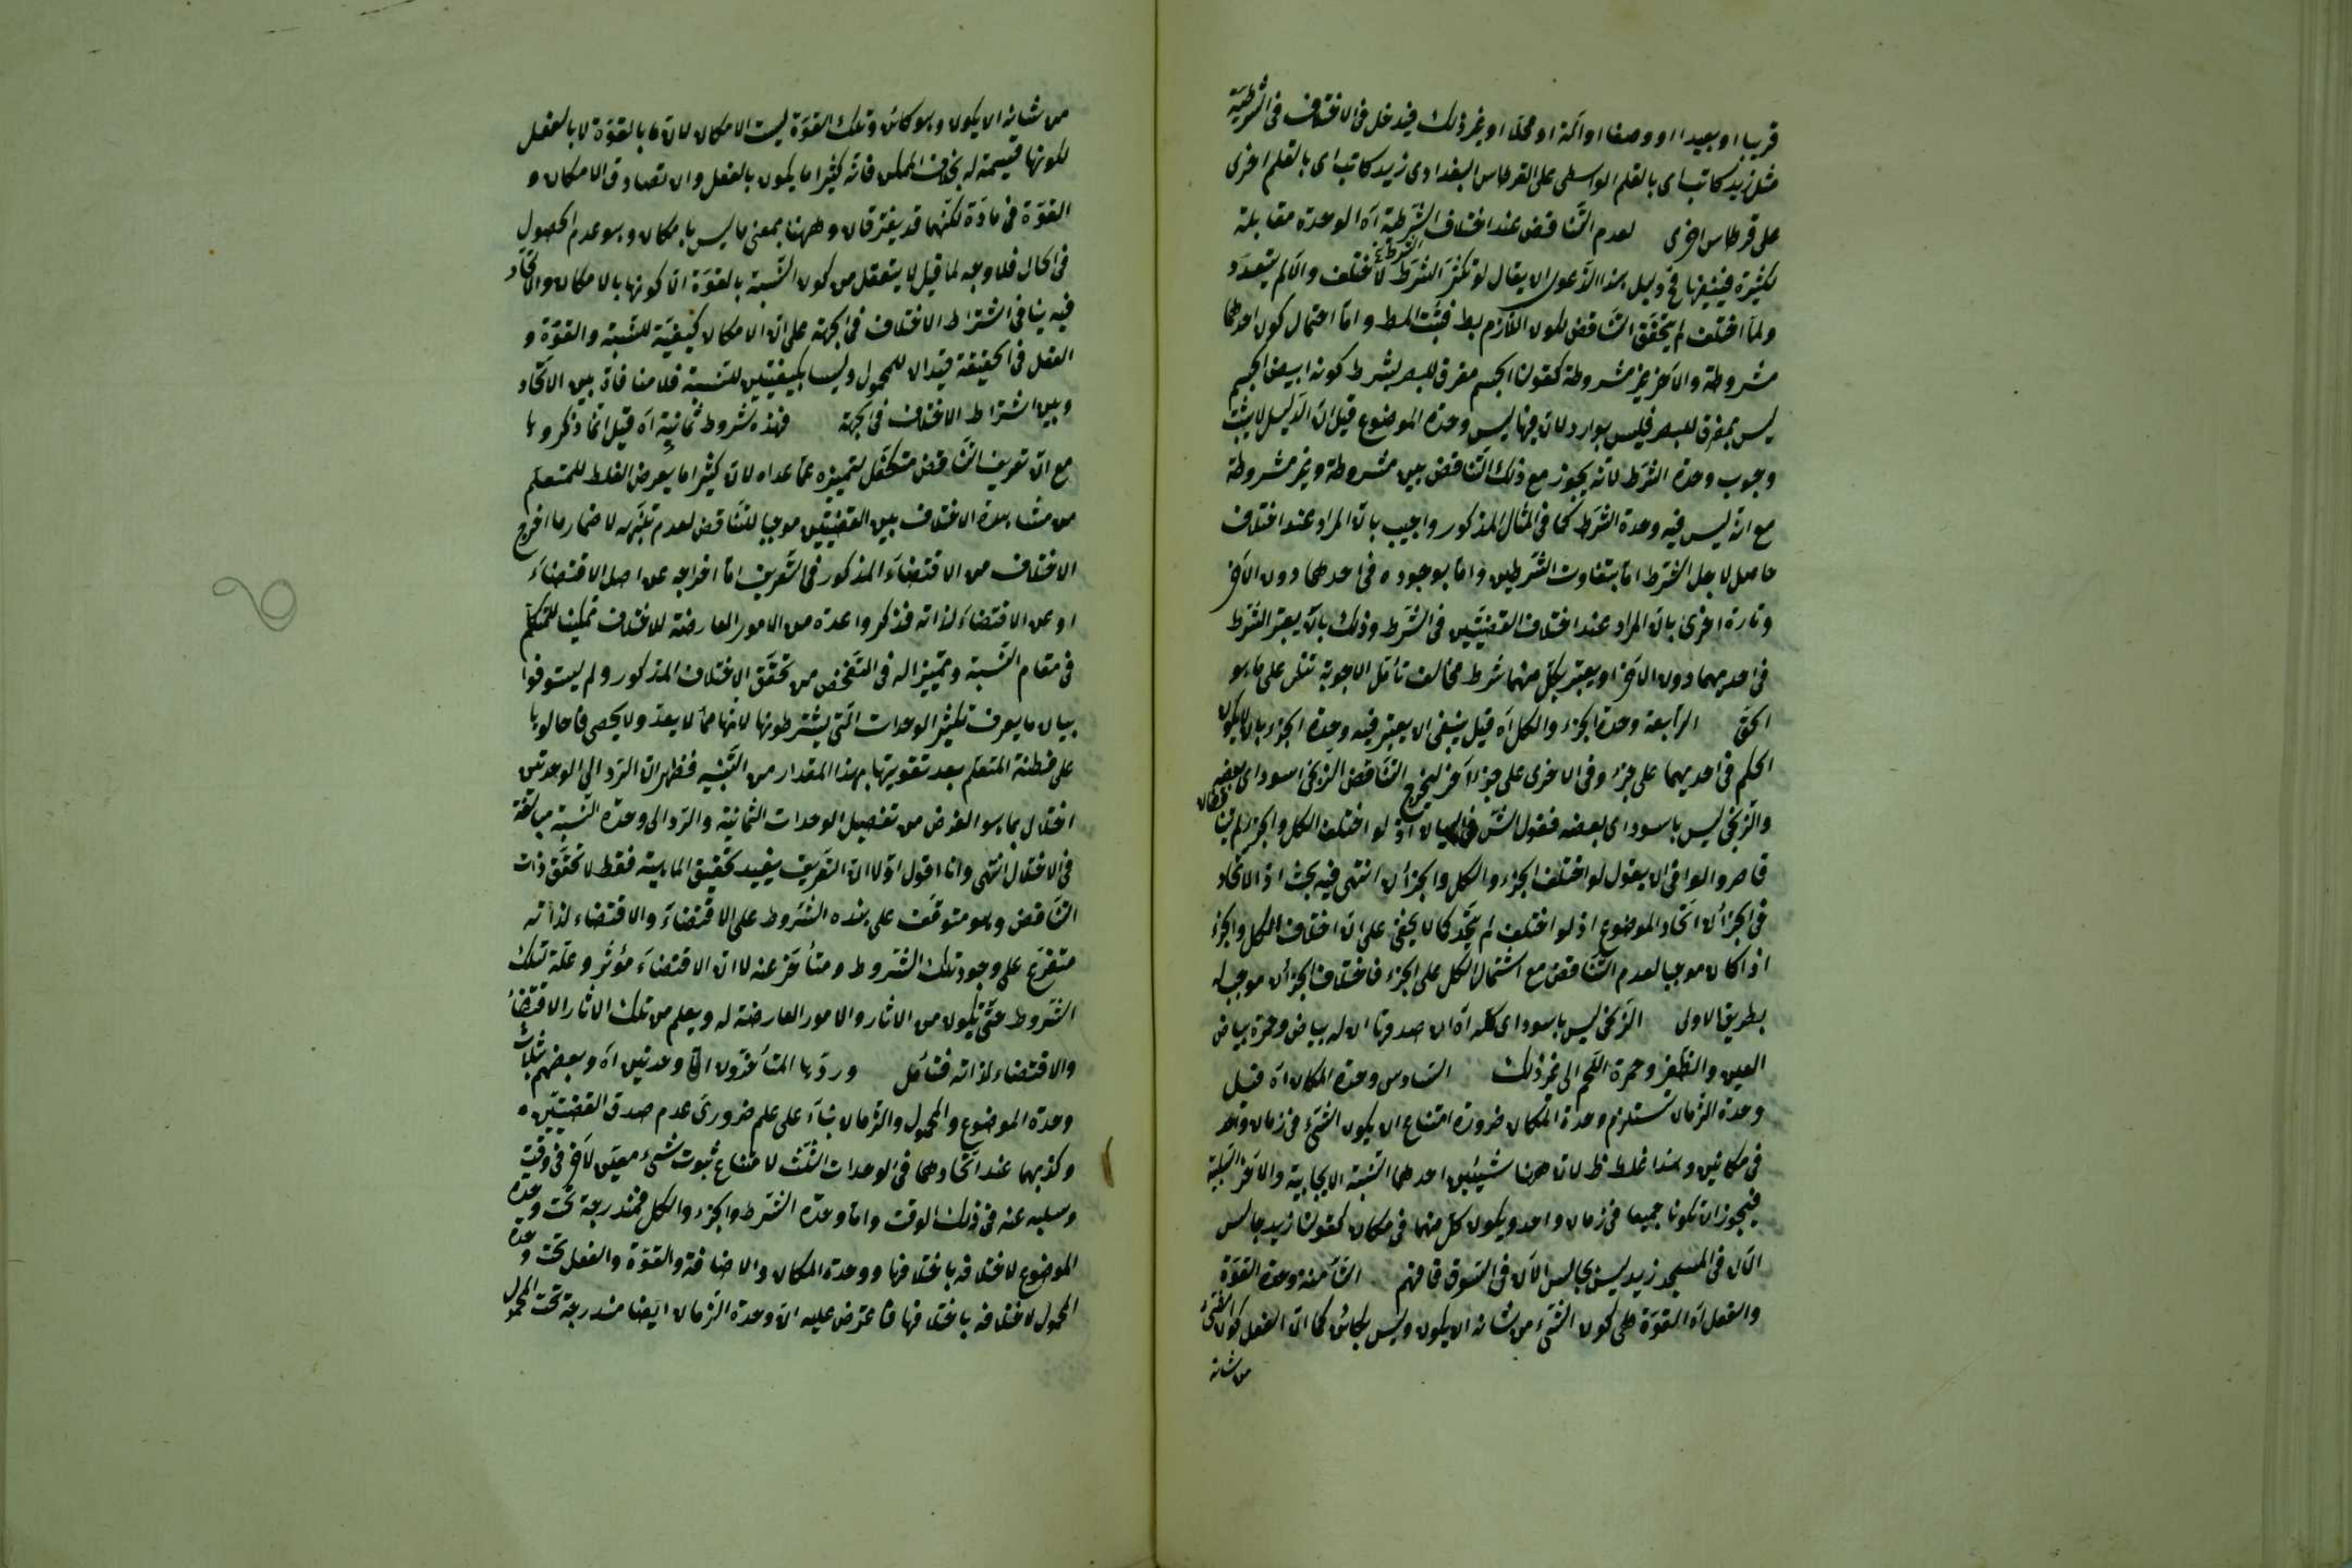 قريبا او بعيدا او وصفا او آلة او محلا او غير ذلك فيدخل فى الاختلاف فى الشرطية
مثل زيد كاتب اى بالقلم الواسطى على القرطاس البغدادى زيد كاتب اى بالقلم اخرى
على قرطاس اخرى لعدم التناقض عند اختلاف الشرط آه الوحدة مقابلة
لكثرة فينبغى فى دليل هذا الدعوى ان يقال لو تكثر الشرط لاختلف والا لم يتعدد
ولما اختلف لم يتحقق التناقض لكون اللازم بط فثبت المط واما احتمال كون احدهما
مشروطة والآخر غير مشروطة كقولنا الجسم مفرق للبصر بشرط كونه ابيض الجسم
ليس بمفرق للبصر فليس بوارد لان فيها ليس وحدة الموضوع قيل ان الدليل لا يثبت
وجوب وحدة الشرط لانه يجوز مع ذلك التناقض بين مشروطة وغير مشروطة
مع انه ليس فيه وحدة الشرط كما فى المثال المذكور واجيب بان المراد عند اختلاف
حاصل لاجل الشرط اما بتفاوت الشرطين واما بوجوده فى احدهما دون الآخر
وتارة اخرى بان المراد عند اختلاف القضيتين فى الشرط وذلك بان يعتبر الشرط
فى احديهما دون الآخر او يعتبر بكل منهما شرط مخالف تأمل الاجوبة على ما هو
الحق الرابعة وحدة الجزء والكل آه قيل ينبغى ان يعتبر فيه وحدة الجزء بان لا يكون
الحكم فى احديهما على جزء وفى الاخرى على جزء آخر ليخرج التناقض الزنجى اسود اى بعضه
والزنجى ليس باسود اى بعضه فقول الش لو اختلف الكل والجزء لم
قاصر والوافى ان يقول لو اختلف الجزء والكل والجزآن انتهى فيه بحث اذ الاتحاد
فى الجزآن اتحاد الموضوع اذ لو اختلف لم يتحد كما لا يخفى على ان اختلاف الكل والجزء
اذا كان موجبا لعدم التناقض مع اشتمال الكل على الجزء فاختلاف الجزآن موجب له
بطريق الاولى الزنجى ليس باسود اى كله آه ان صدقها ان له بياض وحمرة بياض
العين والظفر وحمرة اللحم الى غير ذلك السادس وحدة المكان آه قيل
وحدة الزمان تستلزم وحدة المكان ضرورة امتناع ان يكون الشئ فى زمان واحد
فى مكانين وهذا غلط ظ لان ههنا شيئين احدهما النسبة الايجابية والآخر السلبية
فيجوز ان تكونا جميعا فى زمان واحد ويكون كل منهما فى مكان كقولنا زيد جالس
الآن فى المسجد زيد ليس بجالس الآن فى السوق فافهم الثامنة وحدة القوة
والفعل آه القوة هى كون الشئ من شانه ان يكون وليس بكائن كما ان الفعل كون الشئ
من شانه
من شانه ان يكون وهو كائن وتلك القوة ليست الامكان لان ما بالقوة لا بالفعل
لكونها قسيمة له بخلاف الممكن فانه كثيرا ما يكون بالفعل وان تصادق الامكان و
القوة فى مادة لكنهما قد يفترقان وههنا بمعنى ما ليس بامكان وهو عدم الحصول
فى الحال فلا وجه لما قيل لا يتعقل من كون النسبة بالقوة الا كونها بالامكان والاتحاد
فيه ينافى اشتراط الاختلاف فى الجهة على ان الامكان كيفية للنسبة والقوة و
الفعل فى الحقيقة قيدان للمحمول وليسا بكيفيتين للنسبة فلا منافاة بين الاتحاد
وبين اشتراط الاختلاف فى الجهة فهذه شروط ثمانية آه قيل انما ذكروها
مع ان تعريف التناقض متكفل لتميزه عما عداه لان كثيرا ما يعرض الغلط للمتعلم
من مشاهدة الاختلاف بين القضيتين موجبا للتناقض لعدم تنبهه لاضمار ما اخرج
الاختلاف من الاقتضاء المذكور فى التعريف اما اخراجه عن اصل الاقتضاء
او عن الاقتضاء لذاته فذكروا عدة من الامور العارضة للاختلاف تمكينا للمتكلم
فى مقام النسبة وتمييزا له فى التفحص من تحقق الاختلاف المذكور ولم يستوفوا
بيان ما يعرف تكثير الوحدات التى يشترطونها لانها مما لا يعد ولا يحصى فاحالوها
على فطنة المتعلم بعد تقويتها بهذا المقدار من التنبيه فظهر ان الرد الى الوحدتين
اختلال بما هو الغرض من تفصيل الوحدات الثمانية والرد الى وحدة النسبة مبالغة
فى الاختلال انتهى وانا اقول اولا ان التعريف يفيد تحقيق الماهية فقط لا تحقق ذات
التناقض وهو متوقف على هذه الشروط على الاقتضاء والاقتضاء لذاته
متفرع على وجود تلك الشروط ومتأخر عنه لا ان الاقتضاء مؤثر وعلة تلك
الشروط حتى تكون من الاثار والامور العارضة له ويعلم من تلك الاثار الاقتضاء
والاقتضاء لذاته فتأمل وردها المتأخرون الى وحدتين آه وبعضهم بثلاث
وحدة الموضوع والمحمول والزمان بناء على علم ضرورى عدم صدق القضيتين
وكذبهما عند اتحادهما فى الوحدات الثلث لامتناع ثبوت شئ معين لآخر فى وقت
وسلبه عنه فى ذلك الوقت واما وحدة الشرط والجزء والكل فمندرجة تحت وحدة
الموضوع لاختلافه باختلافها ووحدة المكان والاضافة والقوة والفعل تحت وحدة
المحمول لاختلافه باختلافها فاعترض عليه ان وحدة الزمان ايضا مندرجة تحت المحمول